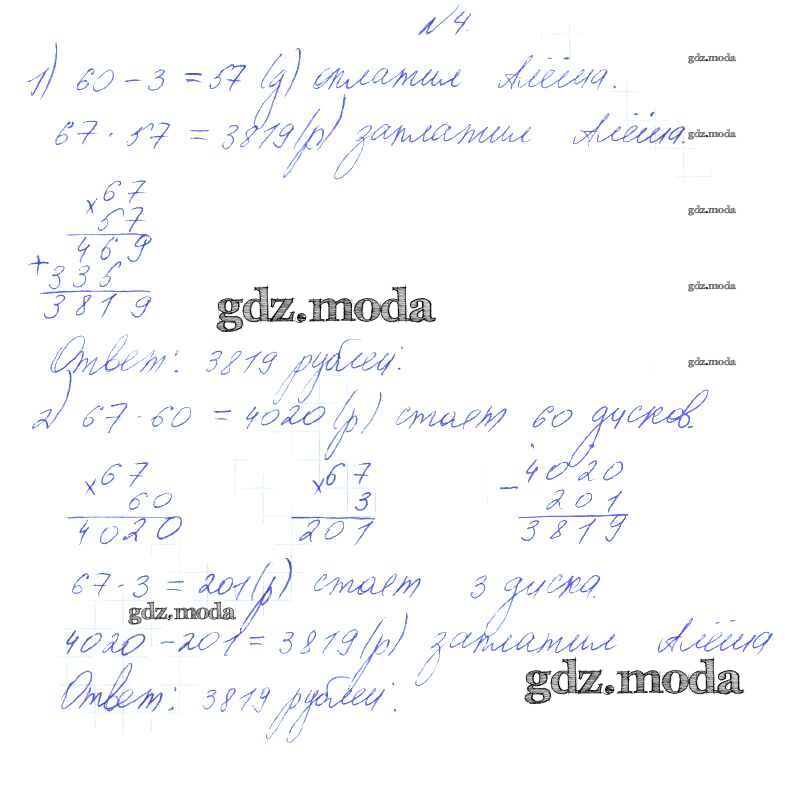 №4.
1) 60 - 3 = 57 (д) оплатил Алёша.
67 · 57 = 3819 (р) заплатил Алёша.
× 67
57
469
+ 335
3819
Ответ: 3819 рублей.
2) 67 · 60 = 4020 (р) стоят 60 дисков.
× 67
60
4020
× 67
3
201
- 4020
201
3819
67 · 3 = 201 (р) стоят 3 диска.
4020 - 201 = 3819 (р) заплатил Алёша
Ответ: 3819 рублей.
gdz.moda
gdz.moda
gdz.moda
gdz.moda
gdz.moda
gdz.moda
gdz.moda
gdz.moda